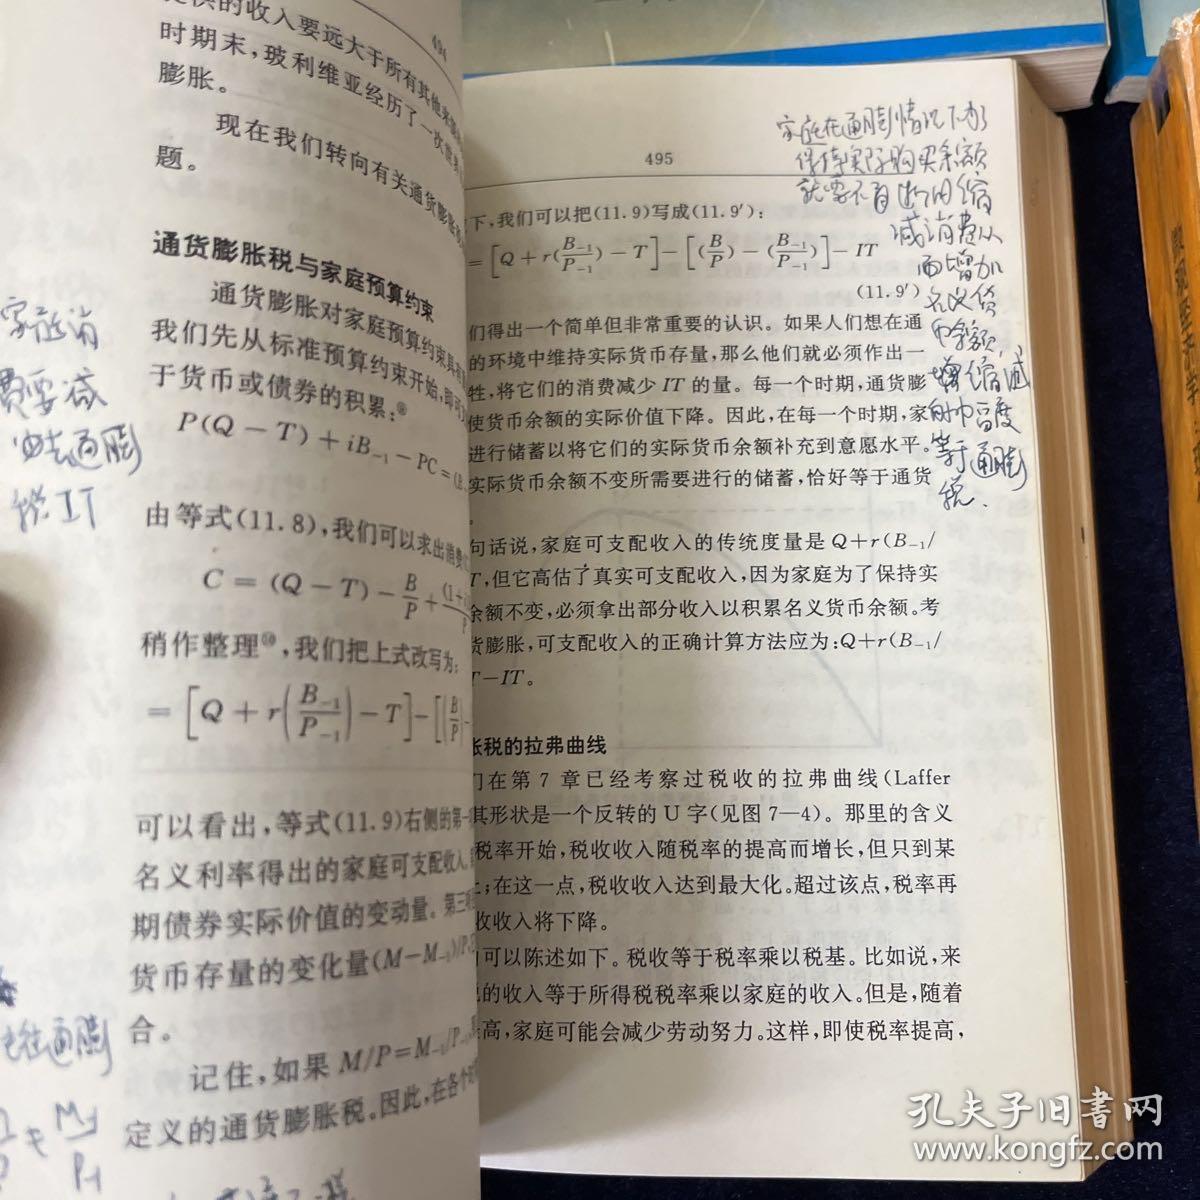 提供的收入要远大于所有其他来源
时期末，玻利维亚经历了一次
膨胀。
现在我们转向有关通货膨胀
题。
通货膨胀税与家庭预算约束
通货膨胀对家庭预算约束具有
我们先从标准预算约束开始，即
于货币或债券的积累：
P(Q－T)＋iB₋₁－PC＝
由等式(11.8)，我们可以求出消费
C＝(Q－T)－B/P＋(1＋
稍作整理⑩，我们把上式改写为：
＝[Q＋r(B₋₁/P₋₁)－T]－[(B/P)－
可以看出，等式(11.9)右侧的第一
名义利率得出的家庭可支配收入。
期债券实际价值的变动量。第三
货币存量的变化量(M－M₋₁)/P
合。
记住，如果 M/P＝M₋₁/P₋₁
定义的通货膨胀税。因此，在各个
家庭消
费要减
去通膨
税 IT
通膨
494
495
下，我们可以把(11.9)写成(11.9′)：
＝[Q＋r(B₋₁/P₋₁)－T]－[(B/P)－(B₋₁/P₋₁)]－IT
(11.9′)
们得出一个简单但非常重要的认识。如果人们想在通
的环境中维持实际货币存量，那么他们就必须作出一
牲，将它们的消费减少 IT 的量。每一个时期，通货膨
使货币余额的实际价值下降。因此，在每一个时期，家
进行储蓄以将它们的实际货币余额补充到意愿水平。
实际货币余额不变所需要进行的储蓄，恰好等于通货
。
句话说，家庭可支配收入的传统度量是 Q＋r(B₋₁/
T，但它高估了真实可支配收入，因为家庭为了保持实
余额不变，必须拿出部分收入以积累名义货币余额。考
货膨胀，可支配收入的正确计算方法应为：Q＋r(B₋₁/
T－IT。
胀税的拉弗曲线
们在第 7 章已经考察过税收的拉弗曲线(Laffer
其形状是一个反转的 U 字(见图 7—4)。那里的含义
税率开始，税收收入随税率的提高而增长，但只到某
；在这一点，税收收入达到最大化。超过该点，税率再
收收入将下降。
可以陈述如下。税收等于税率乘以税基。比如说，来
的收入等于所得税税率乘以家庭的收入。但是，随着
提高，家庭可能会减少劳动努力。这样，即使税率提高，
家庭在通膨情况下为
保持实际购买余额
就要不断的缩
减消费从
而增加
名义货
币余额，
缩减
的 度
等于通膨
税.
孔夫子旧书网
www.kongfz.com